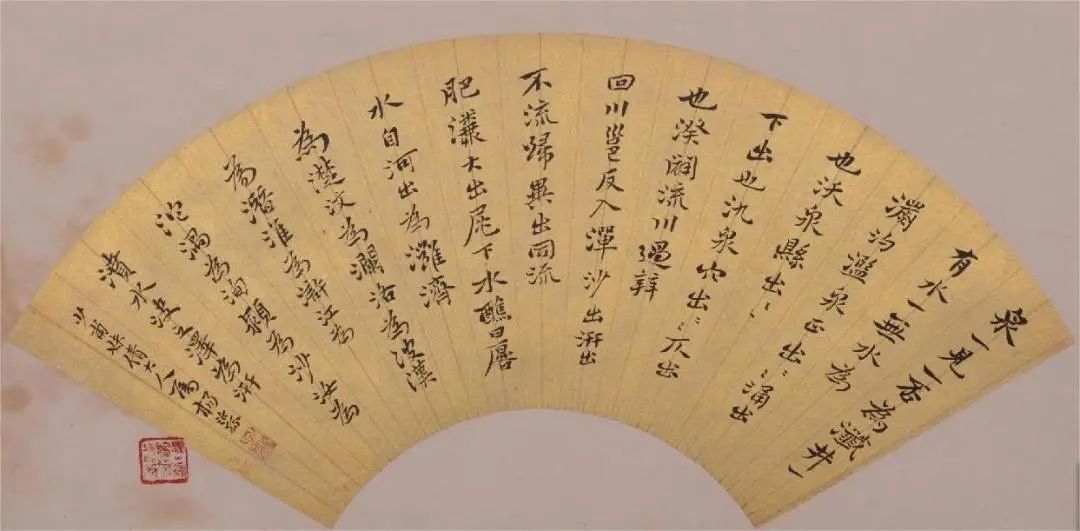 泉一見一否為瀸井一
有水一無水為
瀱汋濫泉正出〻涌出
也沃泉縣出〻
下出也氿泉穴出〻仄出
也湀闢流川過辨
回川邕反入潬沙出汧出
不流歸異出同流
肥瀵大出尾下水醮曰厬
水自河出為灉濟
為濋汶為瀾洛為波漢
為潛淮為滸江為
沱濄為洵潁為沙汝為
濆水決之澤為汧
少甫姻倩大人屬楊峴